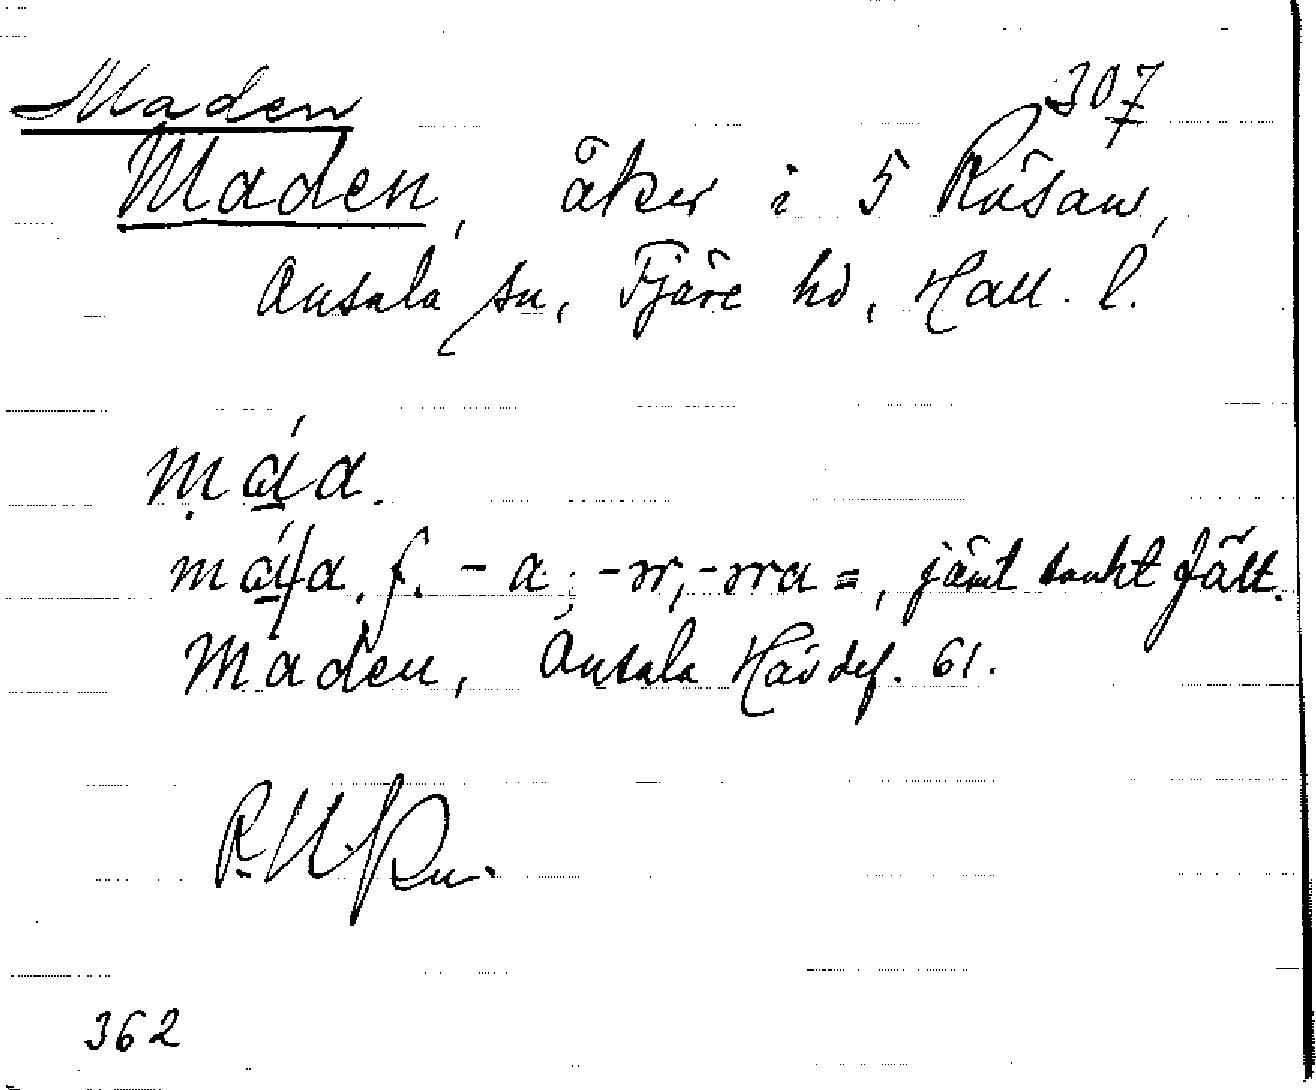 Maden
307
Maden, åker i 5 Rösan,
Onsala sn, Fjäre hd, Hall. l.
máa.
má/a. f. -a; -ər, -əra =, jämt sankt fält.
Maden, Onsala Hävdef. 61.
362